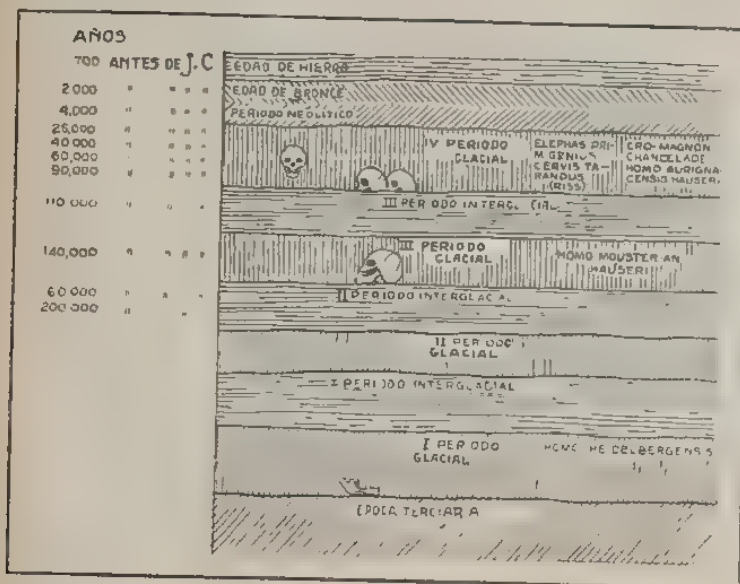 AÑOS
700 ANTES DE J.C
2000 " " " "
4,000 " " " "
25,000 " " " "
40000 " " " "
60,000 " " " "
90,000 " " " "
110 000 " " "
140,000 " " " "
60000 " " "
200 000 " "
EDAD DE HIERRO
EDAD DE BRONCE
PERIODO NEOLITICO
IV PERIODO
GLACIAL
ELEPHAS PRI-
MIGENIUS
CERVIS TA-
RANDUS
(RISS)
CRO-MAGNON
CHANCELADE
HOMO AURIGNA
CENSIS HAUSERI
III PERIODO INTERGLACIAL
III PERIODO
GLACIAL
HOMO MOUSTERIAN
HAUSERI
II PERIODO INTERGLACIAL
II PERIODO
GLACIAL
I PERIODO INTERGLACIAL
I PERIODO
GLACIAL
HOMO HEIDELBERGENSIS
EPOCA TERCIARIA